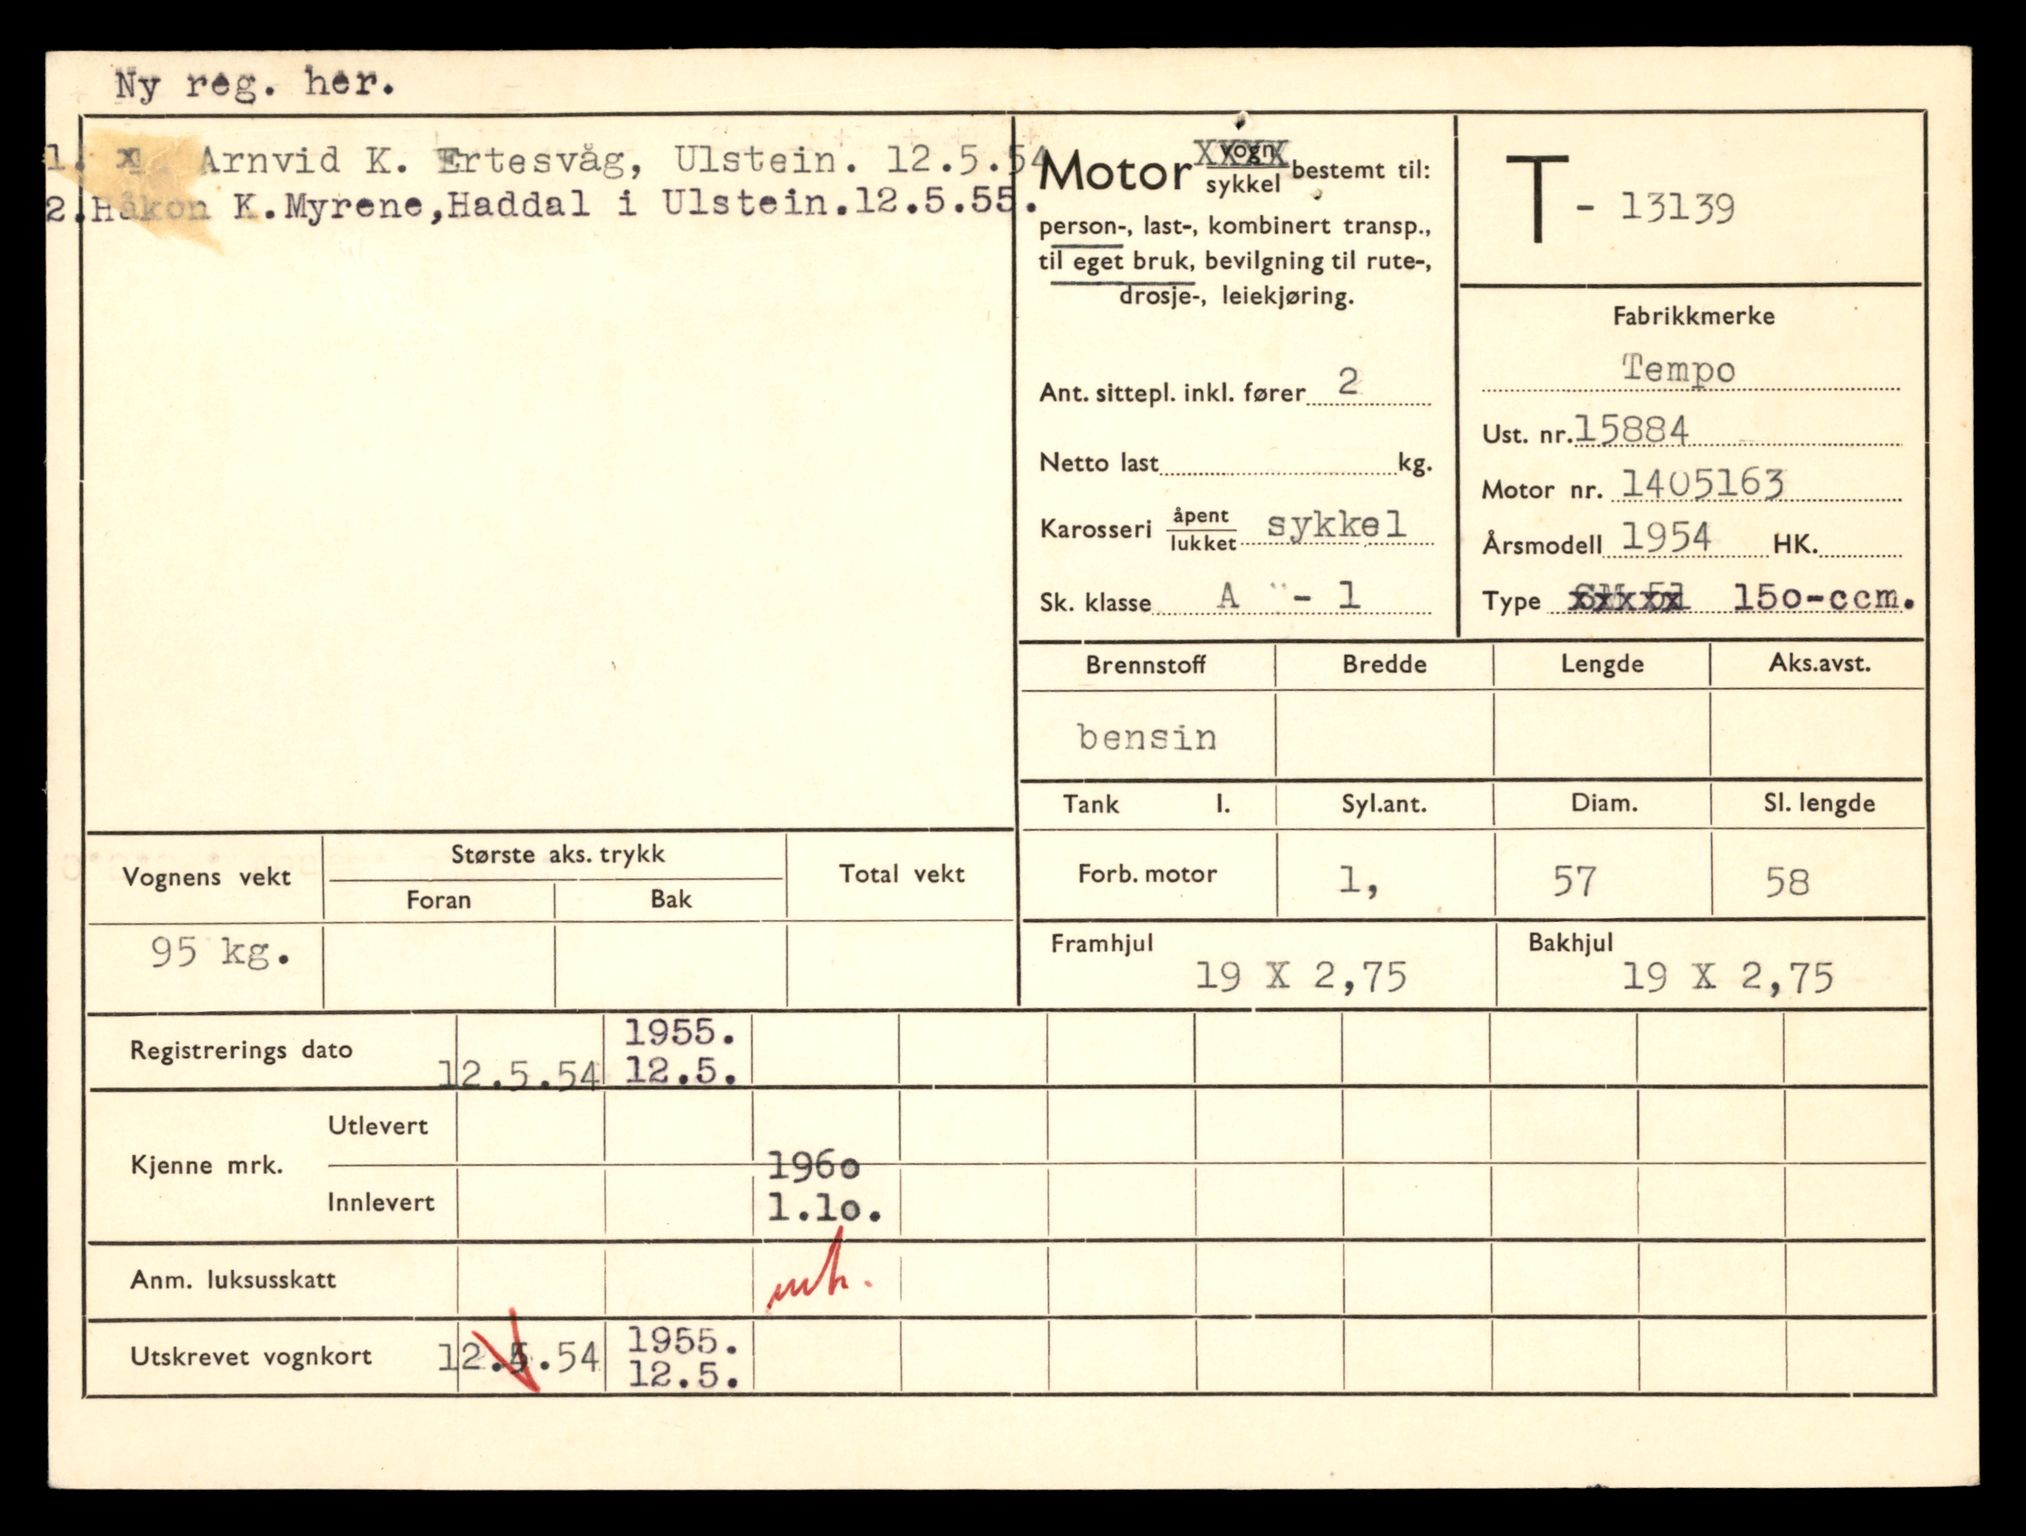 Ny reg. her.
1. Arnvid K. Ertesvåg, Ulstein. 12.5.54
2. Håkon K.Myrene,Haddal i Ulstein.12.5.55.
Motor vogn
sykkel bestemt til:
person-, last-, kombinert transp.,
til eget bruk, bevilgning til rute-,
drosje-, leiekjøring.
Ant. sittepl. inkl. fører 2
Netto last kg.
Karosseri åpent
lukket sykkel
Sk. klasse A - 1
T - 13139
Fabrikkmerke
Tempo
Ust. nr. 15884
Motor nr. 1405163
Årsmodell 1954 HK.
Type 150-ccm.
Brennstoff Bredde Lengde Aks.avst.
bensin
Tank l. Syl.ant. Diam. Sl. lengde
Forb. motor 1, 57 58
Framhjul Bakhjul
19 X 2,75 19 X 2,75
Vognens vekt Største aks. trykk Total vekt
Foran Bak
95 kg.
Registrerings dato 12.5.54 1955.
12.5.
Kjenne mrk. Utlevert
Innlevert 1960
1.10.
Anm. luksusskatt
Utskrevet vognkort 12.5.54 1955.
12.5.